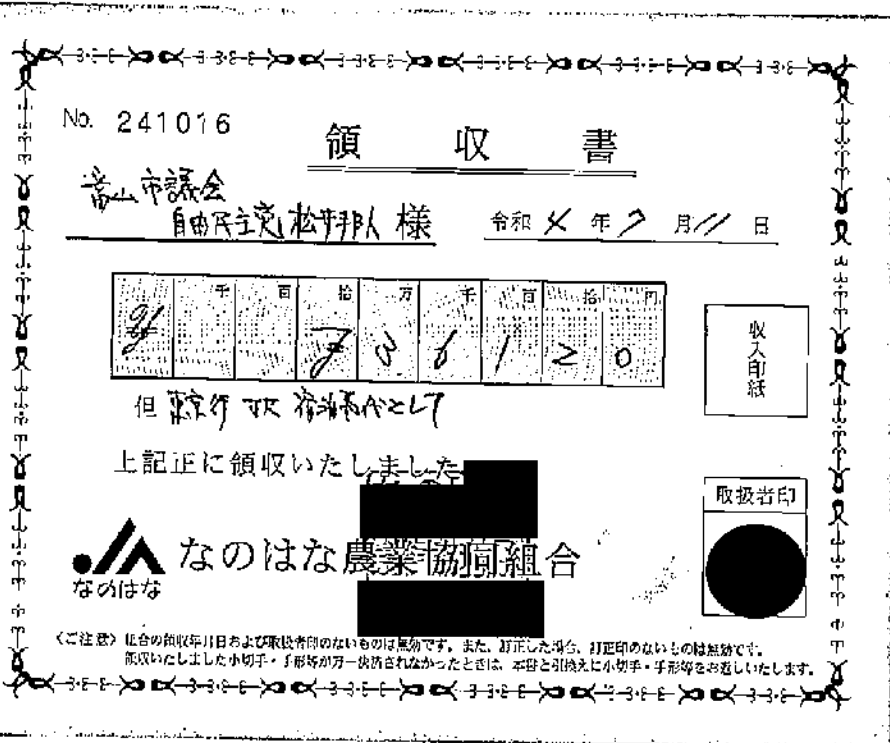 No. 241016
領収書
富山市議会
自由民主党 松井邦人 様
令和 4 年 7 月 11 日
千 百 拾 万 千 百 拾 円
¥ 7 3 6 1 2 0
収入印紙
但 東京行 JR 宿泊代として
上記正に領収いたしました
取扱者印
なのはな
なのはな農業協同組合
〈ご注意〉 組合の領収年月日および取扱者印のないものは無効です。また、訂正した場合、訂正印のないものは無効です。
領収いたしました小切手・手形等が万一決済されなかったときは、本証と引換えに小切手・手形等をお返しいたします。